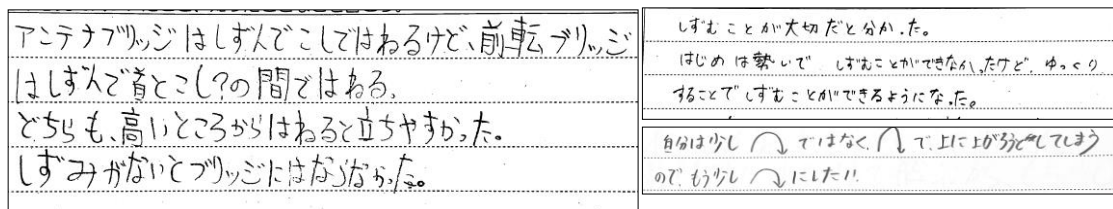 アンテナブリッジはしずんでこしではねるけど、前転ブリッジ
はしずんで首とこし?の間ではねる。
どちらも、高いところからはねると立ちやすかった。
しずみがないとブリッジにはならなかった。
しずむことが大切だと分かった。
はじめは勢いで しずむことができなかったけど、ゆっくり
することでしずむことができるようになった。
自分は少し ではなく、 で、上に上がろうとしてしまう
ので、もう少し にしたい。